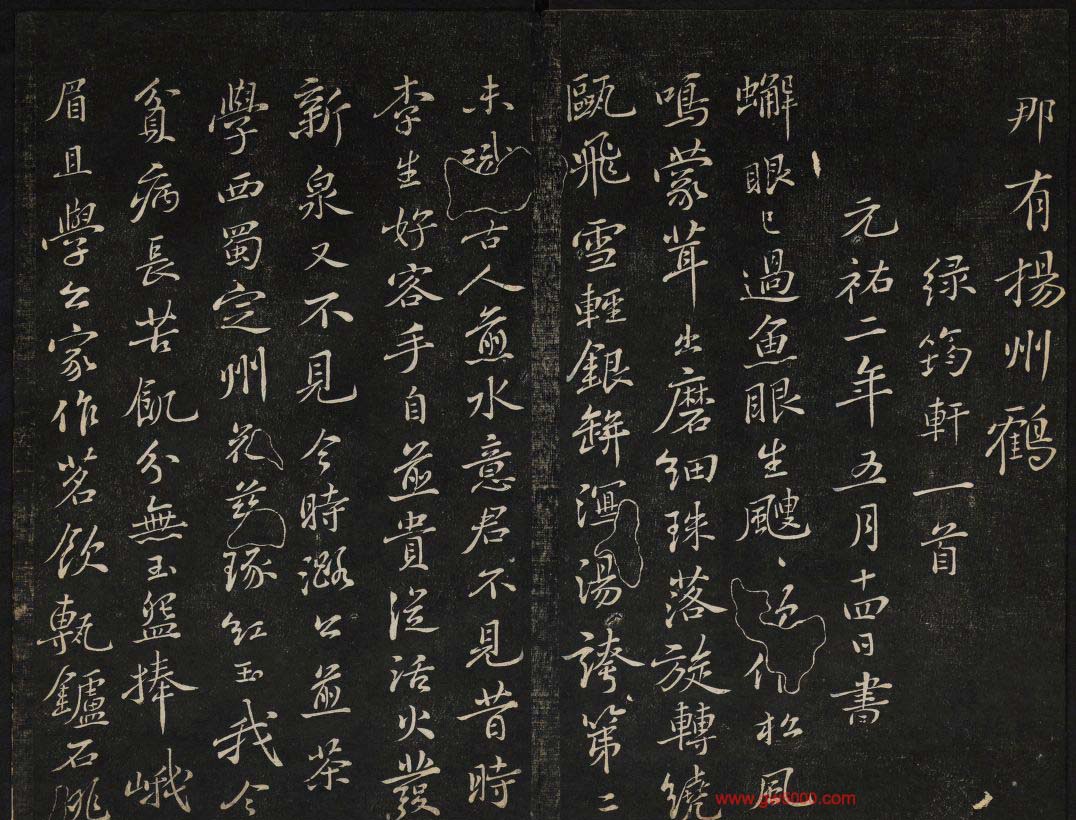 那有揚州鶴
緑筠軒一首
元祐二年五月十四日書
蠏眼已過魚眼生颼〻作松風
鳴蒙茸出磨細珠落旋轉繞
甌飛雪輕銀缾瀉湯誇第二
未識古人煎水意君不見昔時
李生好客手自煎貴從活火發
新泉又不見今時潞公煎茶
學西蜀定州花瓷琢紅玉我今
貧病長苦飢分無玉盌捧峨
眉且學公家作茗飲甎鑪石銚